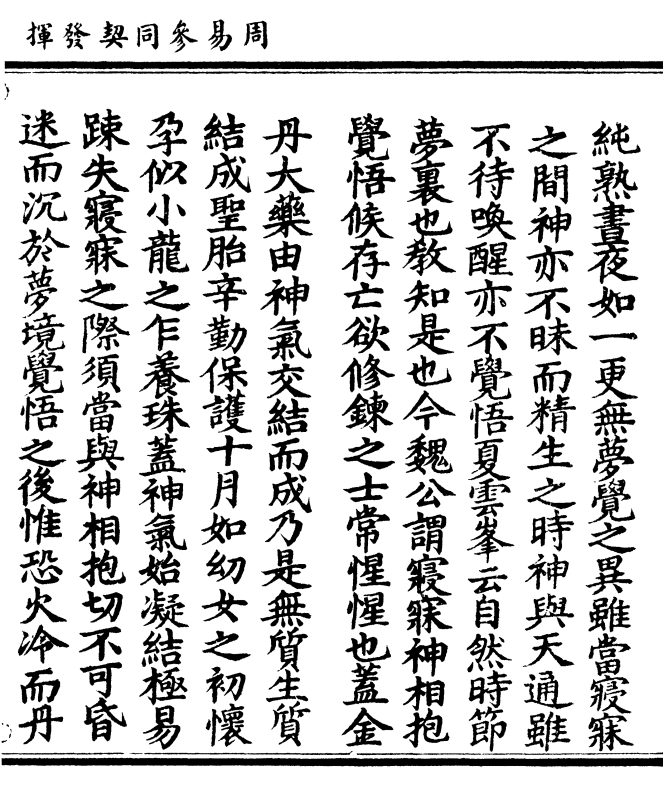 周易參同契發揮
純熟晝夜如一更無夢覺之異雖當寢寐
之間神亦不昧而精生之時神與天通雖
不待喚醒亦不覺悟夏雲峯云自然時節
夢裏也教知是也今魏公謂寢寐神相抱
覺悟候存亡欲修鍊之士常惺惺也蓋金
丹大藥由神氣交結而成乃是無質生質
結成聖胎辛勤保護十月如幼女之初懷
孕似小龍之乍養珠蓋神氣始凝結極易
踈失寢寐之際須當與神相抱切不可昏
迷而沉於夢境覺悟之後惟恐火冷而丹